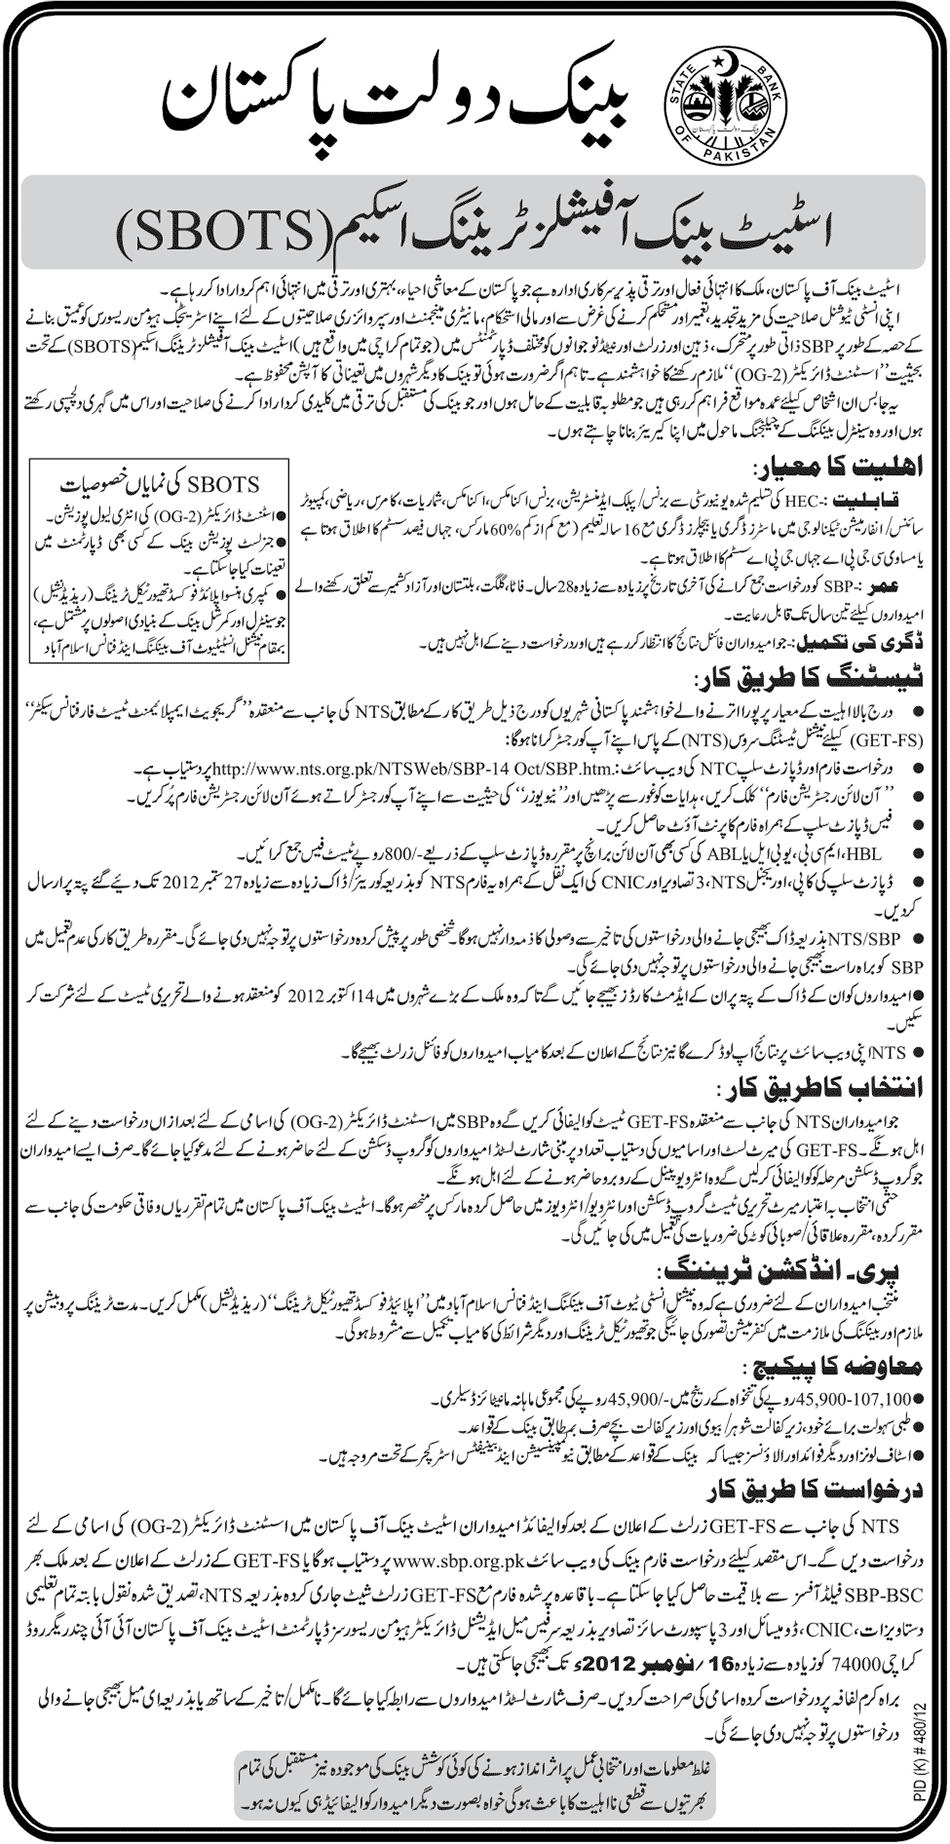 بینک دولت پاکستان
STATE BANK OF PAKISTAN
اسٹیٹ بینک آفیشلز ٹریننگ اسکیم (SBOTS)
اسٹیٹ بینک آف پاکستان، ملک کا انتہائی فعال اور ترقی پذیر سرکاری ادارہ ہے جو پاکستان کے معاشی احیاء، بہتری اور ترقی میں انتہائی اہم کردار ادا کر رہا ہے۔
اپنی انسٹی ٹیوشنل صلاحیت کی مزید تجدید، تعمیر اور مستحکم کرنے کی غرض سے اور مالی استحکام، مانیٹری مینجمنٹ اور سپروائزری صلاحیتوں کے لئے اپنے اسٹریٹجک ہیومن ریسورس کو عمیق بنانے
کے حصہ کے طور پر SBP ذاتی طور پر متحرک، ذہین اور زرلٹ اورینٹیڈ نوجوانوں کو مختلف ڈپارٹمنٹس میں (جو تمام کراچی میں واقع ہیں) اسٹیٹ بینک آفیشلز ٹریننگ اسکیم (SBOTS) کے تحت
بحیثیت ’’اسسٹنٹ ڈائریکٹر (OG-2)‘‘ ملازم رکھنے کا خواہشمند ہے۔ تاہم اگر ضرورت ہوئی تو بینک کا دیگر شہروں میں تعیناتی کا آپشن محفوظ ہے۔
یہ جابس ان اشخاص کیلئے عمدہ مواقع فراہم کر رہی ہیں جو مطلوبہ قابلیت کے حامل ہوں اور جو بینک کی مستقبل کی ترقی میں کلیدی کردار ادا کرنے کی صلاحیت اور اس میں گہری دلچسپی رکھتے
ہوں اور وہ سینٹرل بینکنگ کے چیلنجنگ ماحول میں اپنا کیریئر بنانا چاہتے ہوں۔
اهلیت کا معیار:
قابلیت :۔ HEC کی تسلیم شدہ یونیورسٹی سے بزنس/ پبلک ایڈمنسٹریشن، بزنس اکنامکس، اکنامکس، شماریات، کامرس، ریاضی، کمپیوٹر
سائنس/ انفارمیشن ٹیکنالوجی میں ماسٹرز ڈگری یا بیچلرز ڈگری مع 16 سالہ تعلیم (مع کم از کم 60% مارکس، جہاں فیصد سسٹم کا اطلاق ہوتا ہے
یا مساوی سی جی پی اے جہاں جی پی اے سسٹم کا اطلاق ہوتا ہے۔
عمر :۔ SBP کو درخواست جمع کرانے کی آخری تاریخ پر زیادہ سے زیادہ 28 سال۔ فاٹا، گلگت، بلتستان اور آزاد کشمیر سے تعلق رکھنے والے
امیدواروں کیلئے تین سال تک قابل رعایت۔
ڈگری کی تکمیل :۔ جو امیدواران فائنل نتائج کا انتظار کر رہے ہیں اور درخواست دینے کے اہل نہیں ہیں۔
SBOTS کی نمایاں خصوصیات
● اسٹنٹ ڈائریکٹر (OG-2) کی انٹری لیول پوزیشن۔
● جنرلسٹ پوزیشن بینک کے کسی بھی ڈپارٹمنٹ میں
تعینات کیا جاسکتا ہے۔
● کمپری ہنسو اپلائڈ فوکسڈ تھیوریٹکل ٹریننگ (ریذیڈنشیل)
جو سینٹرل اور کمرشل بینک کے بنیادی اصولوں پر مشتمل ہے،
بمقام نیشنل انسٹیٹیوٹ آف بینکنگ اینڈ فنانس اسلام آباد
ٹیسٹنگ کا طریق کار:
● درج بالا اہلیت کے معیار پر پورا اترنے والے خواہشمند پاکستانی شہریوں کو درج ذیل طریق کار کے مطابق NTS کی جانب سے منعقدہ ’’گریجویٹ ایمپلائمنٹ ٹیسٹ فار فنانس سیکٹر‘‘
(GET-FS) کیلئے نیشنل ٹیسٹنگ سروس (NTS) کے پاس اپنے آپ کو رجسٹر کرانا ہوگا:
● درخواست فارم اور ڈپازٹ سلپ NTC کی ویب سائٹ :.http://www.nts.org.pk/NTSWeb/SBP-14 Oct/SBP.htm پر دستیاب ہے۔
● ’’آن لائن رجسٹریشن فارم‘‘ کلک کریں، ہدایات کو غور سے پڑھیں اور ’’نیو یوزر‘‘ کی حیثیت سے اپنے آپ کو رجسٹر کراتے ہوئے آن لائن رجسٹریشن فارم پُر کریں۔
● فیس ڈپازٹ سلپ کے ہمراہ فارم کا پرنٹ آؤٹ حاصل کریں۔
● HBL، ایم سی بی، یو بی ایل یا ABL کی کسی بھی آن لائن برانچ پر مقررہ ڈپازٹ سلپ کے ذریعے -/800 روپے ٹیسٹ فیس جمع کرائیں۔
● ڈپازٹ سلپ کی کاپی، اوریجنل NTS، 3 تصاویر اور CNIC کی ایک نقل کے ہمراہ یہ فارم NTS کو بذریعہ کوریئر/ ڈاک زیادہ سے زیادہ 27 ستمبر 2012 تک دیئے گئے پتہ پر ارسال
کردیں۔
● NTS/SBP بذریعہ ڈاک بھیجی جانے والی درخواستوں کی تاخیر سے وصولی کا ذمہ دار نہیں ہوگا۔ شخصی طور پر پیش کردہ درخواستوں پر توجہ نہیں دی جائے گی۔ مقررہ طریق کار کی عدم تعمیل میں
SBP کو براہ راست بھیجی جانے والی درخواستوں پر توجہ نہیں دی جائے گی۔
● امیدواروں کو ان کے ڈاک کے پتہ پر ان کے ایڈمٹ کارڈز بھیجے جائیں گے تاکہ وہ ملک کے بڑے شہروں میں 14 اکتوبر 2012 کو منعقد ہونے والے تحریری ٹیسٹ کے لئے شرکت کر
سکیں۔
● NTS اپنی ویب سائٹ پر نتائج اپ لوڈ کرے گا نیز نتائج کے اعلان کے بعد کامیاب امیدواروں کو فائنل زرلٹ بھیجے گا۔
انتخاب کا طریق کار :
جو امیدواران NTS کی جانب سے منعقدہ GET-FS ٹیسٹ کوالیفائی کریں گے وہ SBP میں اسسٹنٹ ڈائریکٹر (OG-2) کی اسامی کے لئے بعد ازاں درخواست دینے کے لئے
اہل ہونگے۔ GET-FS کی میرٹ لسٹ اور اسامیوں کی دستیاب تعداد پر مبنی شارٹ لسٹڈ امیدواروں کو گروپ ڈسکشن کے لئے حاضر ہونے کے لئے مدعو کیا جائے گا۔ صرف ایسے امیدواران
جو گروپ ڈسکشن مرحلہ کو کوالیفائی کرلیں گے وہ انٹرویو پینل کے روبرو حاضر ہونے کے لئے اہل ہونگے۔
حتمی انتخاب بہ اعتبار میرٹ تحریری ٹیسٹ گروپ ڈسکشن اور انٹرویو/ انٹرویوز میں حاصل کردہ مارکس پر منحصر ہوگا۔ اسٹیٹ بینک آف پاکستان میں تمام تقرریاں وفاقی حکومت کی جانب سے
مقرر کردہ، مقررہ علاقائی/ صوبائی کوٹہ کی ضروریات کی تعمیل میں کی جائیں گی۔
پری۔ انڈکشن ٹریننگ:
منتخب امیدواران کے لئے ضروری ہے کہ وہ نیشنل انسٹی ٹیوٹ آف بینکنگ اینڈ فنانس اسلام آباد میں ’’اپلائیڈ فوکسڈ تھیوریٹکل ٹریننگ‘‘ (ریذیڈنشیل) مکمل کریں۔ مدت ٹریننگ پروبیشن پر
ملازم اور بینکنگ کی ملازمت میں کنفرمیشن تصور کی جائیگی جو تھیوریٹکل ٹریننگ اور دیگر شرائط کی کامیاب تکمیل سے مشروط ہوگی۔
معاوضہ کا پیکیج :
● 45,900-107,100 روپے کی تنخواہ کے رینج میں -/45,900 روپے کی مجموعی ماہانہ مانیٹائزڈ سیلری۔
● طبی سہولت برائے خود، زیر کفالت شوہر/ بیوی اور زیر کفالت بچے صرف بمطابق بینک کے قواعد۔
● اسٹاف لونز اور دیگر فوائد اور الاؤنسز جیسا کہ بینک کے قواعد کے مطابق نیو کمپینسیشن اینڈ بینیفٹس اسٹرکچر کے تحت مروجہ ہیں۔
درخواست کا طریق کار
NTS کی جانب سے GET-FS زرلٹ کے اعلان کے بعد کوالیفائڈ امیدواران اسٹیٹ بینک آف پاکستان میں اسسٹنٹ ڈائریکٹر (OG-2) کی اسامی کے لئے
درخواست دیں گے۔ اس مقصد کیلئے درخواست فارم بینک کی ویب سائٹ www.sbp.org.pk پر دستیاب ہوگا یا GET-FS کے زرلٹ کے اعلان کے بعد ملک بھر
SBP-BSC فیلڈ آفسز سے بلا قیمت حاصل کیا جاسکتا ہے۔ باقاعدہ پر شدہ فارم مع GET-FS زرلٹ شیٹ جاری کردہ بذریعہ NTS، تصدیق شدہ نقول بابتہ تمام تعلیمی
دستاویزات، CNIC، ڈومیسائل اور 3 پاسپورٹ سائز تصاویر بذریعہ سرفیس میل ایڈیشنل ڈائریکٹر ہیومن ریسورسز ڈپارٹمنٹ اسٹیٹ بینک آف پاکستان آئی آئی چندریگر روڈ
کراچی 74000 کو زیادہ سے زیادہ 16/ نومبر 2012ء تک بھیجی جاسکتی ہیں۔
براہ کرم لفافہ پر درخواست کردہ اسامی کی صراحت کردیں۔ صرف شارٹ لسٹڈ امیدواروں سے رابطہ کیا جائے گا۔ نامکمل/ تاخیر کے ساتھ یا بذریعہ ای میل بھیجی جانے والی
درخواستوں پر توجہ نہیں دی جائے گی۔
غلط معلومات اور انتخابی عمل پر اثر انداز ہونے کی کوئی کوشش بینک کی موجودہ نیز مستقبل کی تمام
بھرتیوں سے قطعی نااہلیت کا باعث ہوگی خواہ بصورت دیگر امیدوار کوالیفائیڈ ہی کیوں نہ ہو۔
PID (K) # 480/12